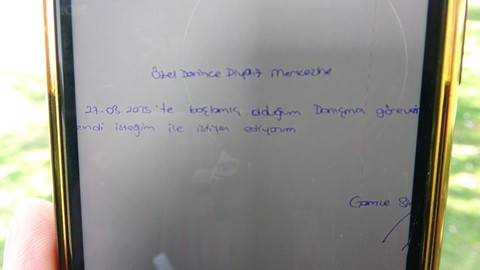 Özel Darıca Diyaliz Merkezine
27.03.2025'te başlamış olduğum Danışma görevi
endi isteğim ile istifa ediyorum
Gamze